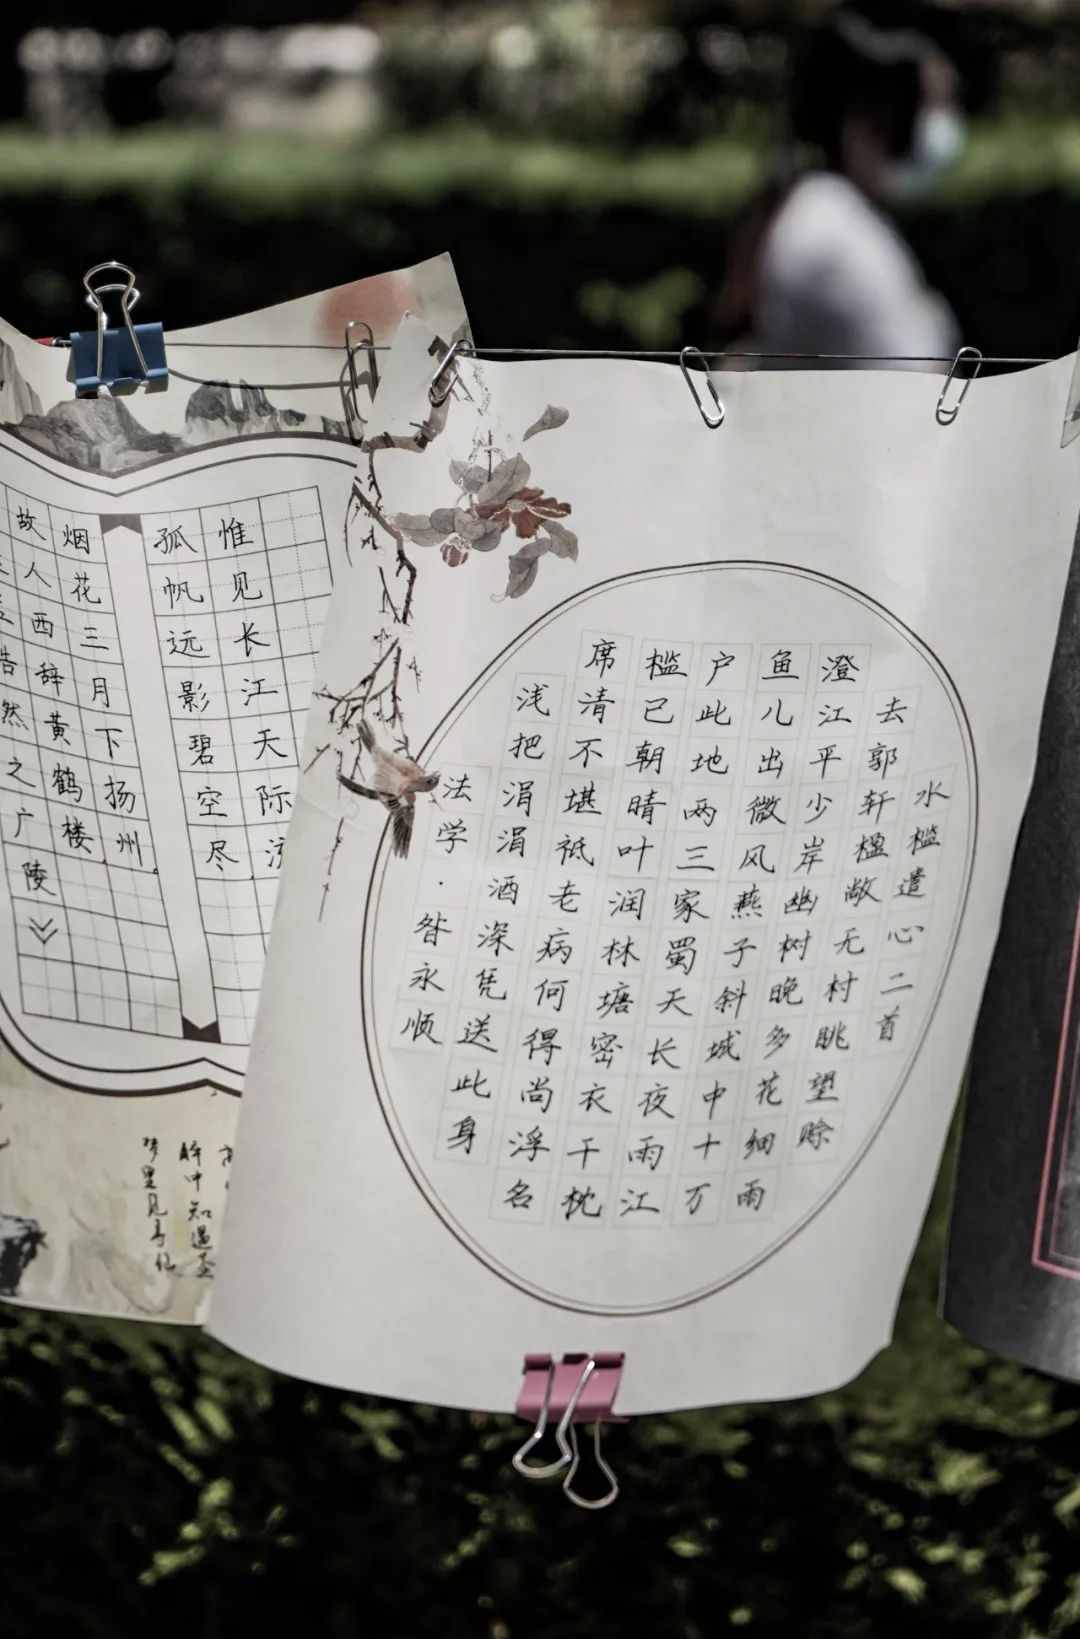 然之广陵
故人西辞黄鹤楼
烟花三月下扬州.
孤帆远影碧空尽
惟见长江天际
水槛遣心二首
去郭轩楹敞无村眺望赊
澄江平少岸幽树晚多花细雨
鱼儿出微风燕子斜城中十万
户此地两三家蜀天长夜雨江
槛已朝晴叶润林塘密衣干枕
席清不堪祗老病何得尚浮名
浅把涓涓酒深凭送此身
法学·昝永顺